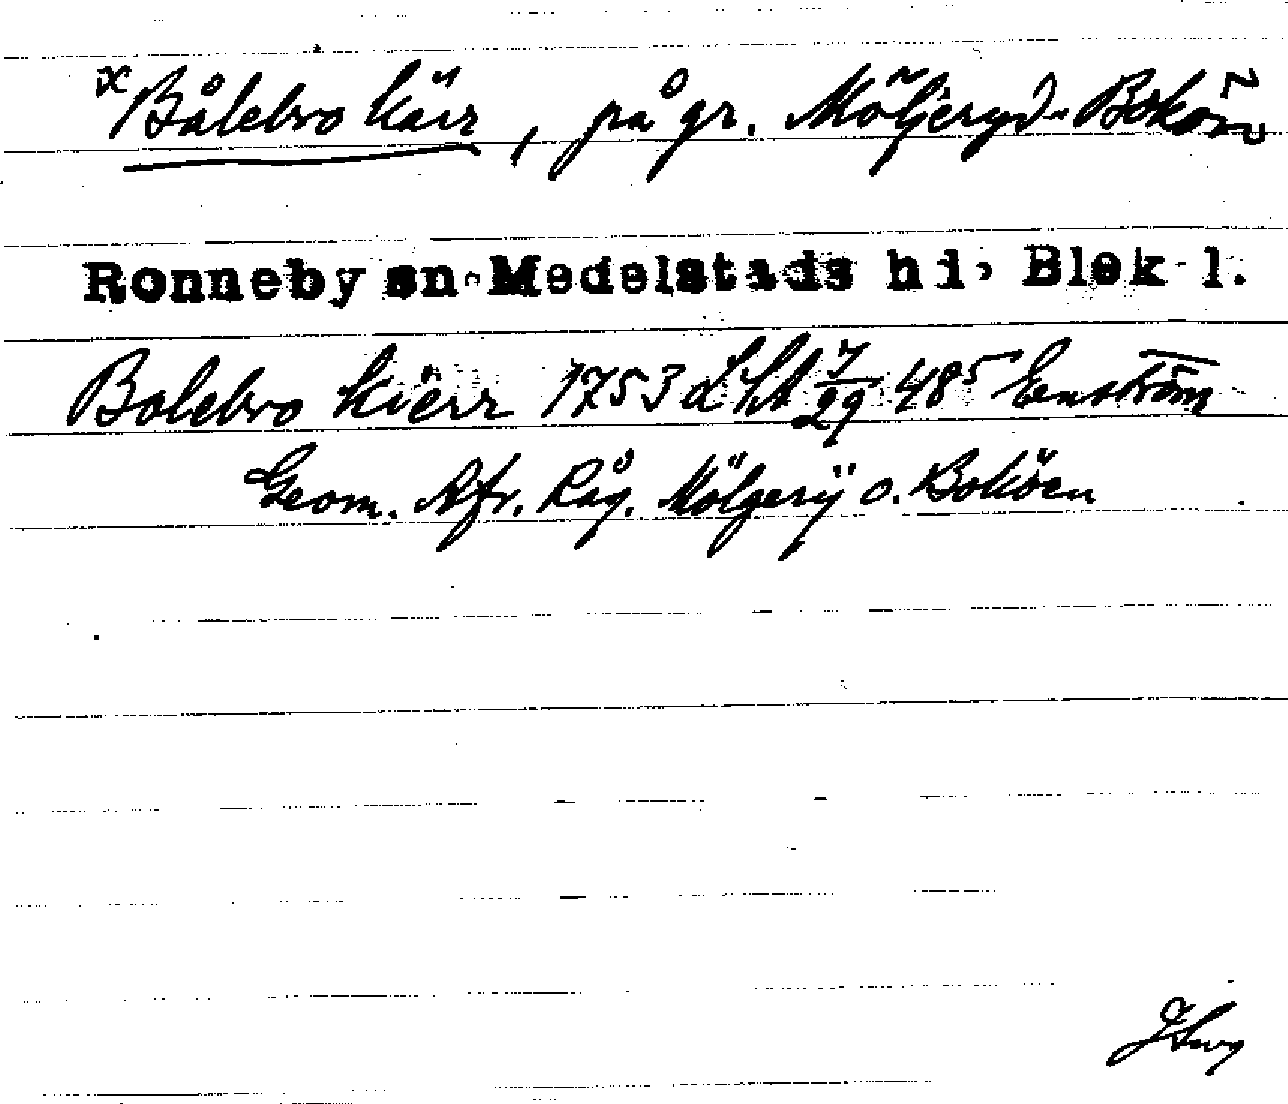 x Bålebro kärr, på gr. Möljeryd-Bokön
Ronneby sn. Medelstads hd, Blek l.
Bolebro kiërr 1753 LSA 7/29 48⁵ Enström
Geom. Afr. Råg. Mölgerÿ o. Boköen